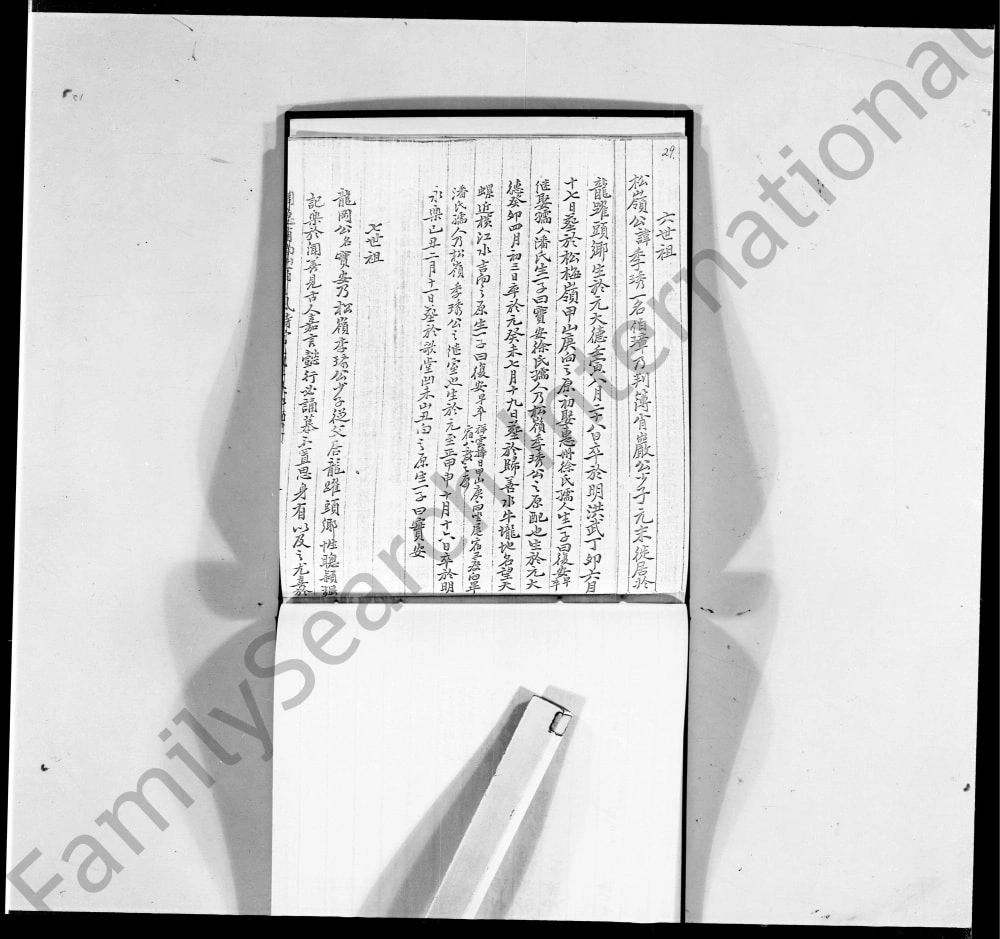 29.
六世祖
松嶺公諱季琇一名伯璋乃判簿肖岩嚴公少子元末徙居於
龍躍頭鄉生於元大德壬寅八月二十八日卒於明洪武丁卯六月
十七日葬於松梅嶺甲山庚向之原初娶惠州徐氏孺人生一子曰復安早卒
继娶孺人潘氏生一子曰寶安徐氏孺人乃松嶺季琇公之原配也生於元大
德癸卯四月初三日卒於元癸未七月十九日葬於歸善水牛壠地名望天
螺近横江水言向之原生一子曰復安早卒
潘氏孺人乃松嶺季琇公之继室也生於元至正甲申十月十六日卒於明
永樂己丑二月十一日葬於歌堂凹未山丑向之原生一子曰寶安
七世祖
龍岡公名寶安乃松嶺季琇公少子從父居龍躍頭鄉性聰穎强
記樂於聞善見古人嘉言懿行必誦慕不置思身有以及之尤喜於
FamilySearch International